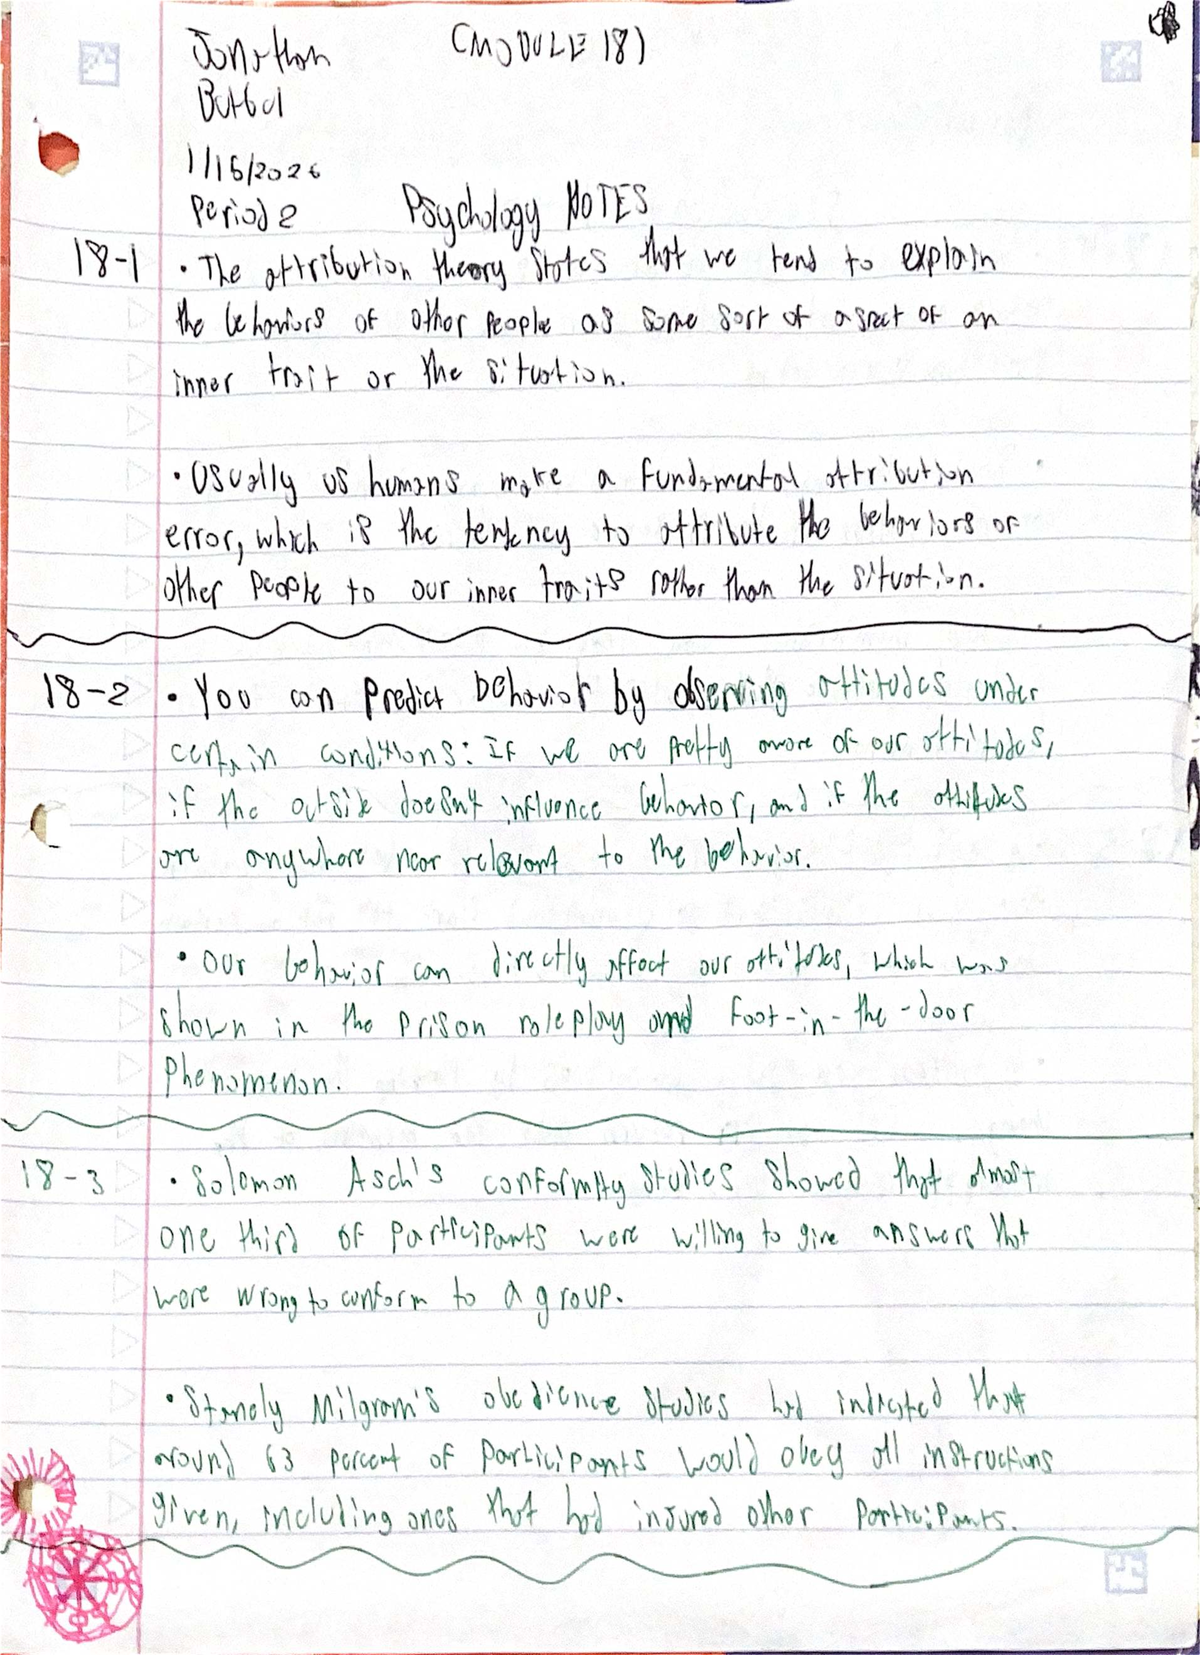 Jonathan (MODULE 18)
1/16/2026
Period 2 Psychology NOTES
18-1 • The attribution theory states that we tend to explain
the behaviors of other people as some sort of aspect of an
inner trait or the situation.
• Usually us humans make a fundamental attribution
error, which is the tendency to attribute the behaviors of
other people to our inner traits rather than the situation.
18-2 • You can predict behavior by observing attitudes under
certain conditions: If we are pretty aware of our attitudes,
if the outside doesn't influence behavior, and if the attitudes
are anywhere near relevant to the behavior.
• Our behavior can directly affect our attitudes, which was
shown in the prison roleplay and foot-in-the-door
phenomenon.
18-3 • Solomon Asch's conformity studies showed that almost
one third of participants were willing to give answers that
were wrong to conform to a group.
• Stanely Milgram's obedience studies had indicated that
around 63 percent of participants would obey all instructions
given, including ones that had injured other participants.